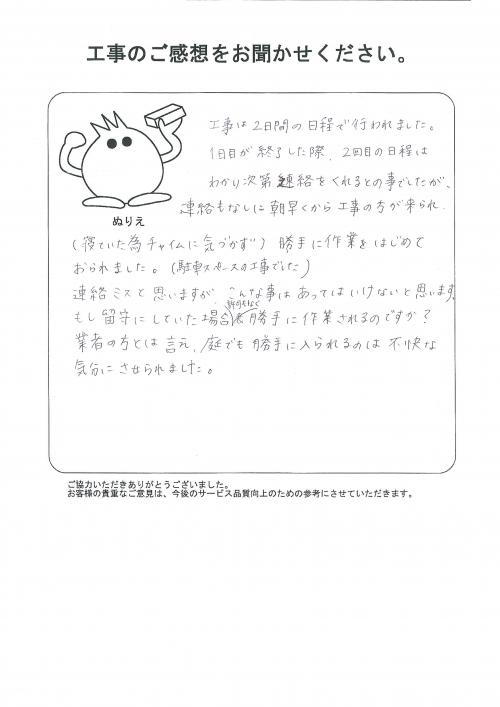 工事のご感想をお聞かせください。
工事は2日間の日程で行われました。
1日目が終了した際、2回目の日程は
わかり次第連絡をくれるとの事でしたが、
ぬりえ
連絡もなしに朝早くから工事の方が来られ
(寝ていた為チャイムに気づかず) 勝手に作業をはじめて
おられました。(駐車スペースの工事でした)
連絡ミスと思いますが、こんな事はあってはいけないと思います。
もし留守にしていた場合 勝手に作業されるのですか?
業者の方とは言え、庭でも勝手に入られるのは不快な
気分にさせられました。
ご協力いただきありがとうございました。
お客様の貴重なご意見は、今後のサービス品質向上のための参考にさせていただきます。